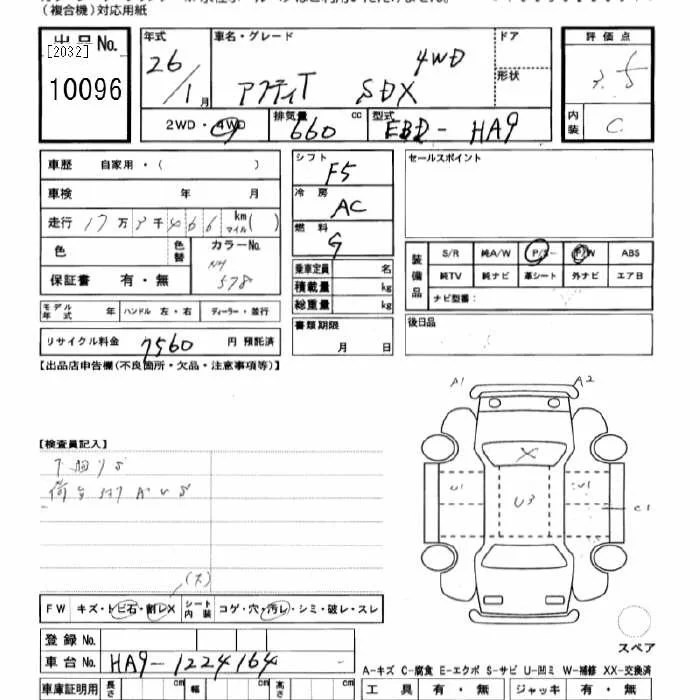 (複合機)対応用紙
出品No.
[2032]
10096
年式 車名・グレード ドア
26/1月 アクティT SDX 4WD
形状
2WD・4WD 排気量 660 cc 型式 EBD-HA9
評価点
3.5
内装 C
車歴 自家用・( )
車検 年 月
走行 17万3千466 km マイル( )
色 色替 カラーNo.
NH
578
保証書 有・無
モデル年式 年 ハンドル 左・右 ディーラー・並行
リサイクル料金 7560 円 預託済
シフト
F5
冷房
AC
燃料
G
乗車定員 名
積載量 kg
総重量 kg
書類期限
月 日
セールスポイント
装備品 S/R 純A/W P/S P/W ABS
純TV 純ナビ 革シート 外ナビ エアB
ナビ型番:
後日品
【出品店申告欄(不良箇所・欠品・注意事項等)】
A1 A2
X
U1 U3 U1 C1
【検査員記入】
(大)
FW キズ・トビ石・割レX シート内装 コゲ・穴・汚レ・シミ・破レ・スレ
スペア
登録No.
車台No. HA9-1224164
A-キズ C-腐食 E-エクボ S-サビ U-凹ミ W-補修 XX-交換済
車庫証明用 長さ cm 幅 cm 高さ cm
工具 有・無 ジャッキ 有・無